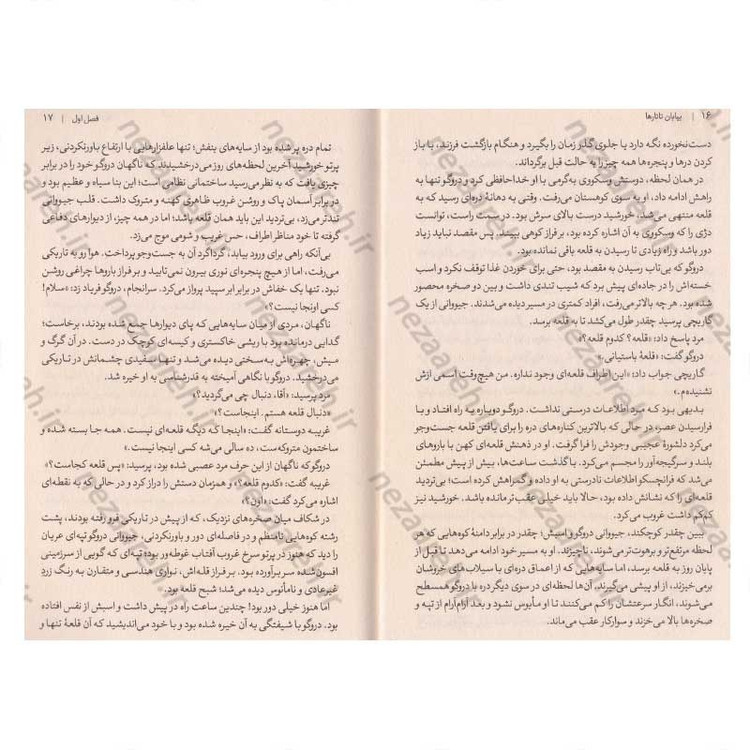 ۱۶ | بیابان تاتارها
دست‌نخورده نگه دارد یا جلوی گذر زمان را بگیرد و هنگام بازگشت فرزند، با باز
کردن درها و پنجره‌ها همه چیز را به حالت قبل برگرداند.
در همان لحظه، دوستش وسکووی به‌گرمی با او خداحافظی کرد و دروگو تنها به
راهش ادامه داد، او به سوی کوهستان می‌رفت. وقتی به دهانهٔ دره‌ای رسید که به
قلعه منتهی می‌شد، خورشید درست بالای سرش بود. در سمت راست، توانست
دژی را که وسکووی به آن اشاره کرده بود، بر فراز کوهی ببیند. پس مقصد نباید زیاد
دور باشد و راه زیادی تا رسیدن به قلعه باقی نمانده بود.
دروگو که بی‌تاب رسیدن به مقصد بود، حتی برای خوردن غذا توقف نکرد و اسب
خسته‌اش را در جاده‌ای پیش برد که شیب تندی داشت و بین دو صخره محصور
شده بود. هر چه بالاتر می‌رفت، افراد کمتری در مسیر دیده می‌شدند. جیووانی از یک
گاریچی پرسید چقدر طول می‌کشد تا به قلعه برسد.
مرد پاسخ داد: «قلعه؟ کدوم قلعه؟»
دروگو گفت: «قلعهٔ باستیانی.»
گاریچی جواب داد: «این اطراف قلعه‌ای وجود نداره. من هیچ‌وقت اسمی ازش
نشنیده‌م.»
بدیهی بود که مرد اطلاعات درستی نداشت. دروگو دوباره به راه افتاد و با
فرارسیدن عصر، در حالی که بالاترین کناره‌های دره را برای یافتن قلعه جست‌وجو
می‌کرد دلشورهٔ عجیبی وجودش را فرا گرفت. او در ذهنش قلعه‌ای کهن با باروهای
بلند و سرگیجه‌آور را مجسم می‌کرد. با گذشت ساعت‌ها، بیش از پیش مطمئن
می‌شد که فرانچسکو اطلاعات نادرستی به او داده و گمراهش کرده است؛ بی‌تردید
قلعه‌ای را که نشانش داده بود، حالا باید خیلی عقب‌تر مانده باشد. خورشید نیز
کم‌کم داشت غروب می‌کرد.
ببین چقدر کوچکند، جیووانی دروگو و اسبش؛ چقدر در برابر دامنهٔ کوه‌هایی که هر
لحظه مرتفع‌تر و برهوت‌تر می‌شوند، ناچیزند. او به مسیر خود ادامه می‌دهد تا قبل از
پایان روز به قلعه برسد، اما سایه‌هایی که از اعماق دره‌ای با سیلاب‌های خروشان
برمی‌خیزند، از او پیشی می‌گیرند. آن‌ها لحظه‌ای در سوی دیگر دره با دروگو همسطح
می‌شوند، انگار سرعتشان را کم می‌کنند تا او مأیوس نشود و بعد آرام‌آرام از تپه و
صخره‌ها بالا می‌خزند و سوارکار عقب می‌ماند.
فصل اول | ۱۷
تمام دره پر شده بود از سایه‌های بنفش؛ تنها علفزارهایی با ارتفاع باورنکردنی، زیر
پرتو خورشید آخرین لحظه‌های روز می‌درخشیدند که ناگهان دروگو خود را در برابر
چیزی یافت که به نظر می‌رسید ساختمانی نظامی است؛ این بنا سیاه و عظیم بود و
در برابر آسمان پاک و روشن غروب ظاهری کهنه و متروک داشت. قلب جیووانی
تندتر می‌زد، بی‌تردید این باید همان قلعه باشد؛ اما در همه چیز، از دیوارهای دفاعی
گرفته تا خود مناظر اطراف، حس غریب و شومی موج می‌زد.
بی‌آنکه راهی برای ورود بیابد، گرداگرد آن به جست‌وجو پرداخت. هوا رو به تاریکی
می‌رفت، اما از هیچ پنجره‌ای نوری بیرون نمی‌تابید و بر فراز باروها چراغی روشن
نبود. تنها یک خفاش در برابر ابر سپید پرواز می‌کرد. سرانجام، دروگو فریاد زد: «سلام!
کسی اونجا نیست؟»
ناگهان، مردی از میان سایه‌هایی که پای دیوارها جمع شده بودند، برخاست؛
گدایی درمانده بود با ریشی خاکستری و کیسه‌ای کوچک در دست. در آن گرگ و
میش، چهره‌اش به‌سختی دیده می‌شد و تنها سفیدی چشمانش در تاریکی
می‌درخشید. دروگو با نگاهی آمیخته به قدرشناسی به او خیره شد.
مرد پرسید: «آقا، دنبال چی می‌گردید؟»
«دنبال قلعه هستم. اینجاست؟»
غریبه دوستانه گفت: «اینجا که دیگه قلعه‌ای نیست. همه جا بسته شده و
ساختمون متروکه‌ست، ده سالی می‌شه کسی اینجا نیست.»
دروگو که ناگهان از این حرف مرد عصبی شده بود، پرسید: «پس قلعه کجاست؟»
غریبه گفت: «کدوم قلعه؟» و همزمان دستش را دراز کرد و در حالی که به نقطه‌ای
اشاره می‌کرد گفت: «اون؟»
در شکاف میان صخره‌های نزدیک، که از پیش در تاریکی فرو رفته بودند، پشت
رشته کوه‌هایی نامنظم و در فاصله‌ای دور و باورنکردنی، جیووانی دروگو تپه‌ای عریان
را دید که هنوز در پرتو سرخ غروب آفتاب غوطه‌ور بود؛ تپه‌ای که گویی از سرزمینی
افسون‌شده سر برآورده بود. بر فراز قله‌اش، نواری هندسی و متقارن به رنگ زردِ
غیرعادی و نامأنوس دیده می‌شد؛ شبح قلعه بود.
اما هنوز خیلی دور بود! چندین ساعت راه در پیش داشت و اسبش از نفس افتاده
بود. دروگو با شیفتگی به آن خیره شده بود و با خود می‌اندیشید که آن قلعهٔ تنها و
nezaareh.ir